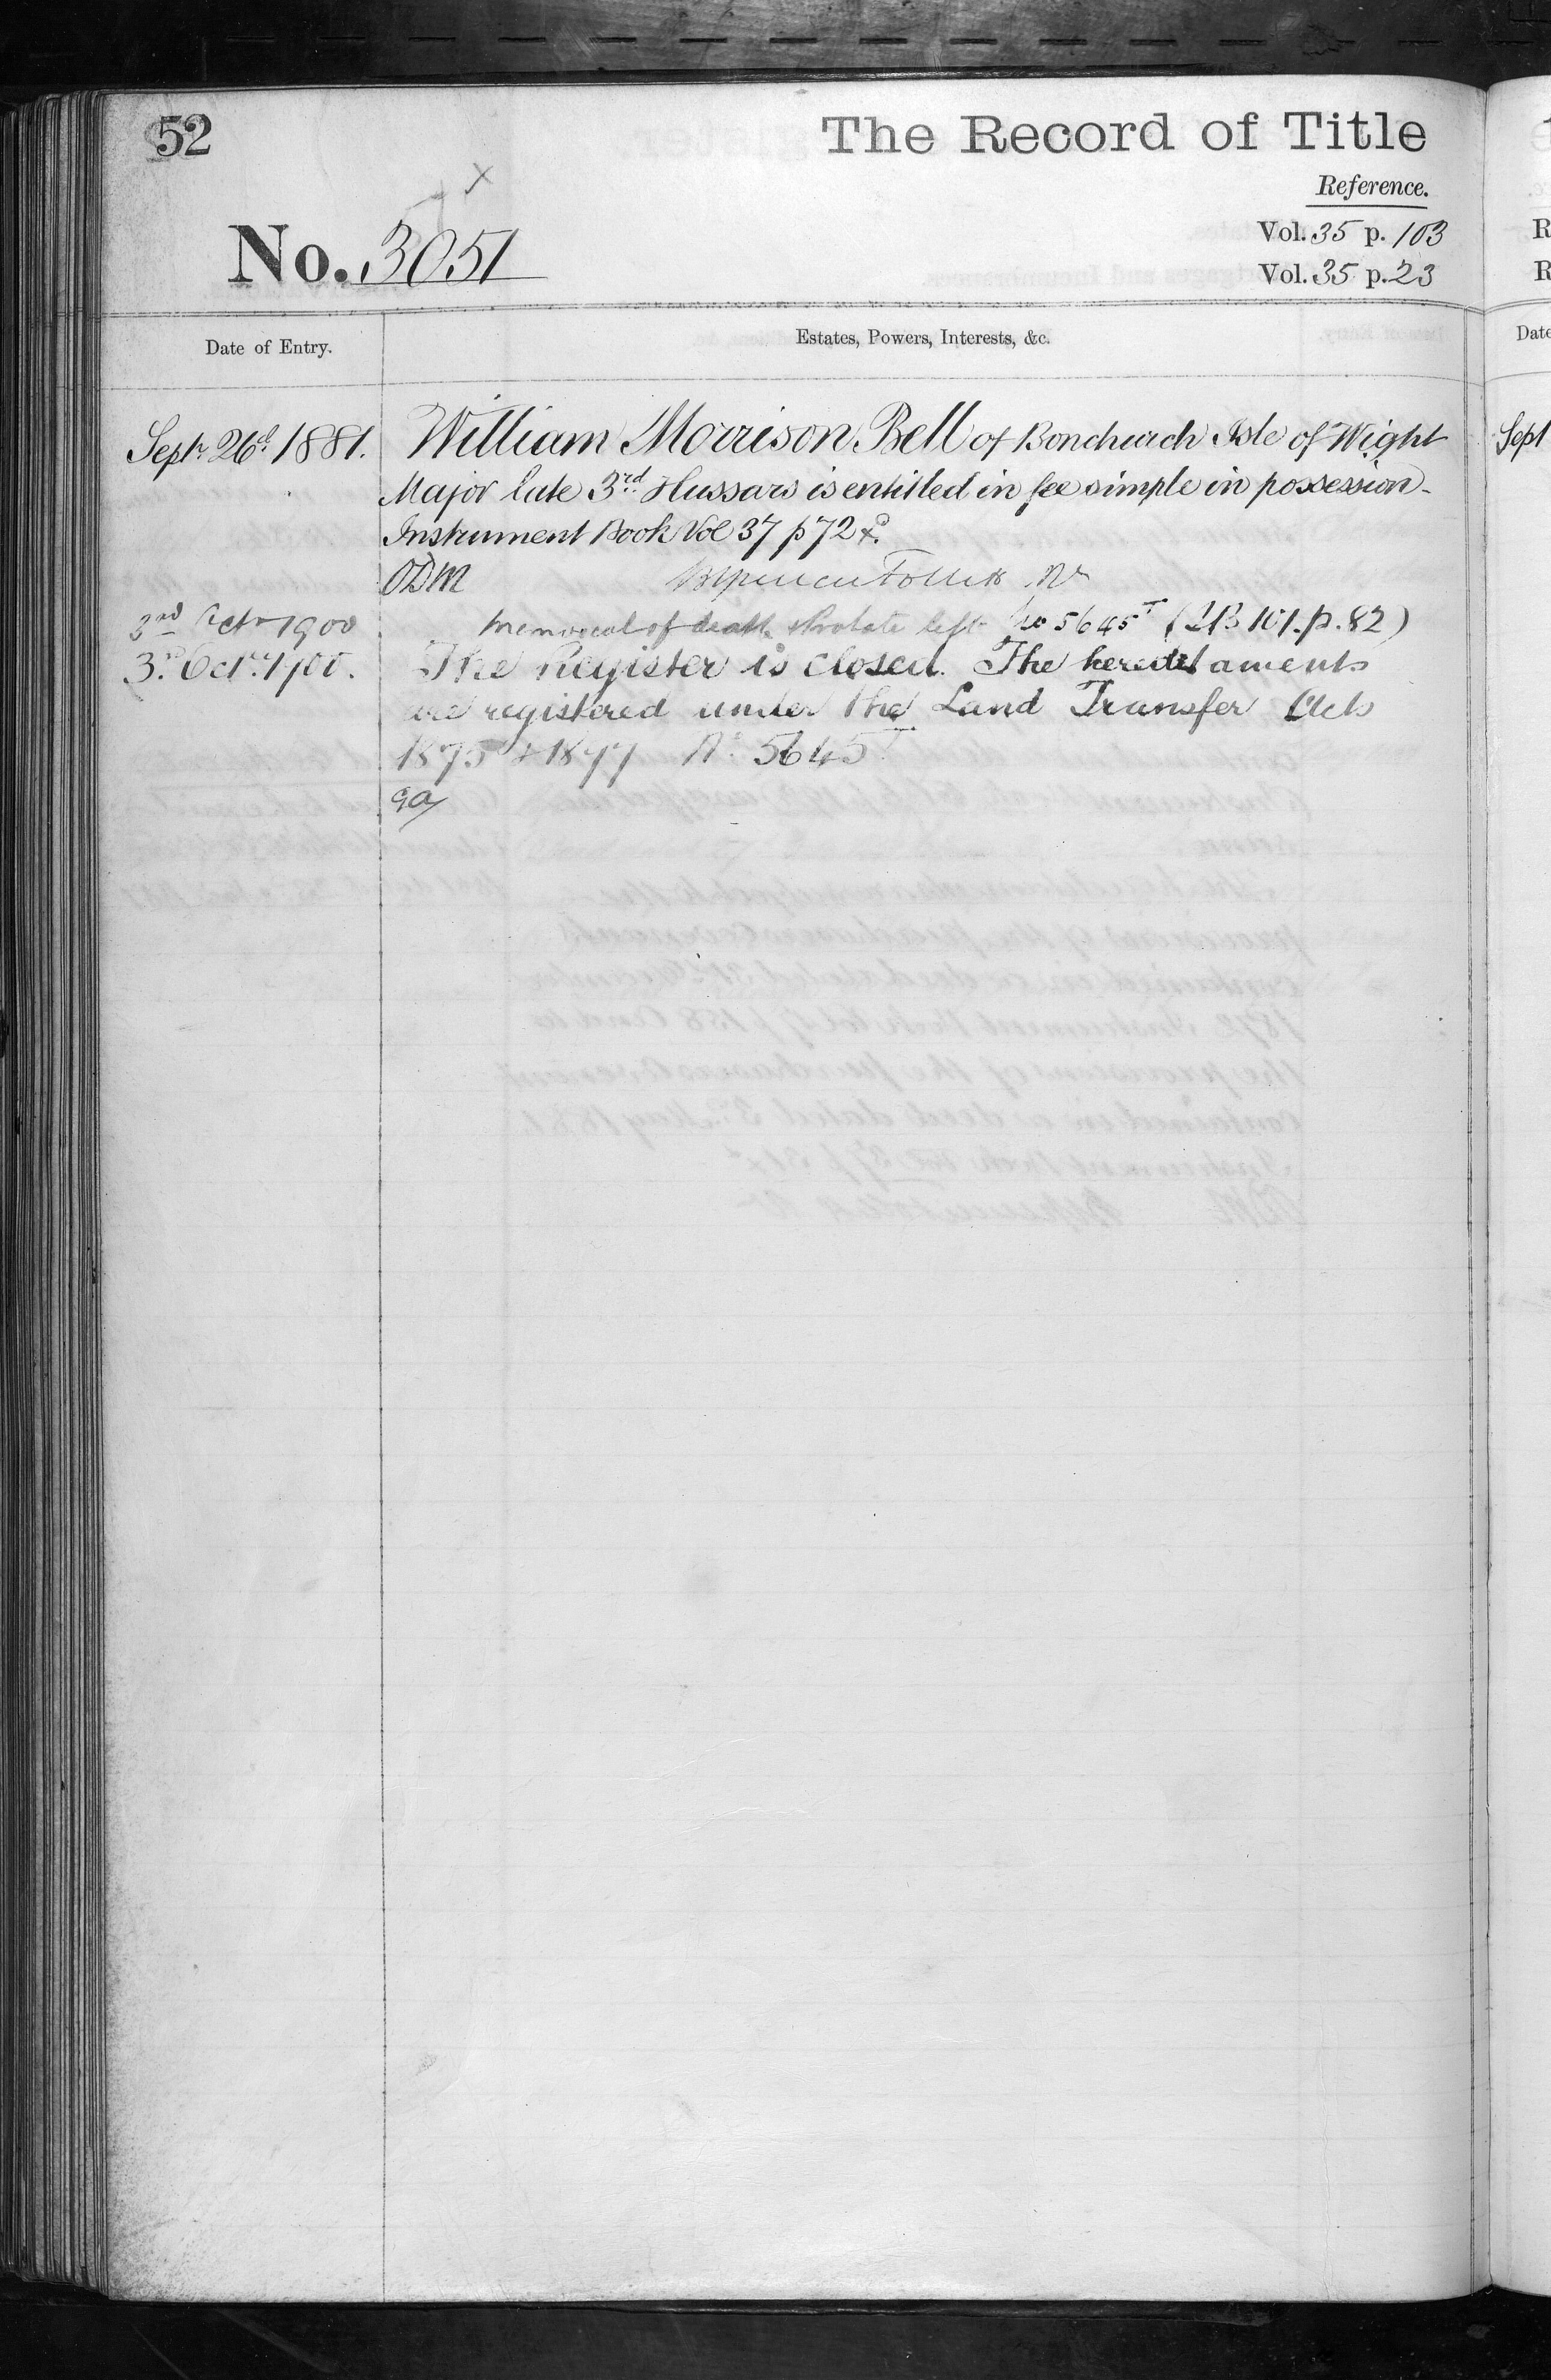 52
The Record of Title
Reference.
No. 3051
Vol. 35 p. 103
Vol. 35 p. 23
Date of Entry.
Estates, Powers, Interests, &c.
Septr. 26th 1881. William Morrison Bell of Bonchurch Isle of Wight
Major late 3rd Hussars is entitled in fee simple in possession-
Instrument Book Vol 37 p 72
ODM
3rd Octr 1900 Memorial of death & Probate left No 5645 T (IB 101. p. 82)
3rd Octr. 1900. The Register is closed. The hereditaments
are registered under the Land Transfer Acts
1875 & 1897 No 5645 T
Date
Sept